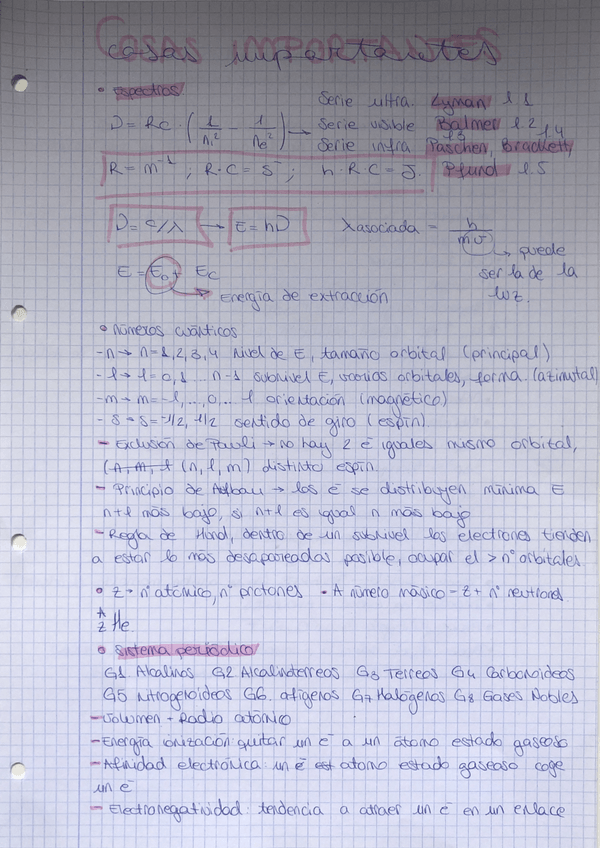 Cosas importantes
• espectros
Serie ultra. Lyman l.1
ν = RC · (1/n₁² − 1/n₂²) → Serie visible Balmer l.2
Serie infra Paschen, Brackett, l.3 l.4
R = m⁻¹ ; R·C = s⁻ ; h·R·C = J. Pfund l.5
ν = c/λ → E = hν λ asociada = h/mv → puede
ser la de la
luz.
E = E₀ + Ec
→ Energía de extracción
• Números cuánticos
- n → n=1,2,3,4 Nivel de E, tamaño orbital (principal)
- l → l=0,1...n-1 subnivel E, varios orbitales, forma (azimutal)
- m → m=-l,...,0...l orientación (magnético)
- s → s=-1/2, 1/2 sentido de giro (espín)
- Exclusión de Pauli → No hay 2 e⁻ iguales mismo orbital,
(n, l, m) distinto espín.
- Principio de Aufbau → los e⁻ se distribuyen mínima E
n+l más bajo, si n+l es igual n más bajo
- Regla de Hund, dentro de un subnivel los electrones tienden
a estar lo más desapareados posible, ocupar el > nº orbitales.
• Z → nº atómico, nº protones • A número másico = Z + nº neutrones
A
Z He.
• Sistema periódico
G1 Alcalinos G2 Alcalinoterreos G3 Terreos G4 Carbonoideos
G5 Nitrogenoideos G6. afígenos G7 Halógenos G8 Gases Nobles
- Volumen - Radio atómico
- Energía ionización: quitar un e⁻ a un átomo estado gaseoso
- Afinidad electrónica: un e⁻ est atomo estado gaseoso coge
un e⁻
- Electronegatividad: tendencia a atraer un e⁻ en un enlace